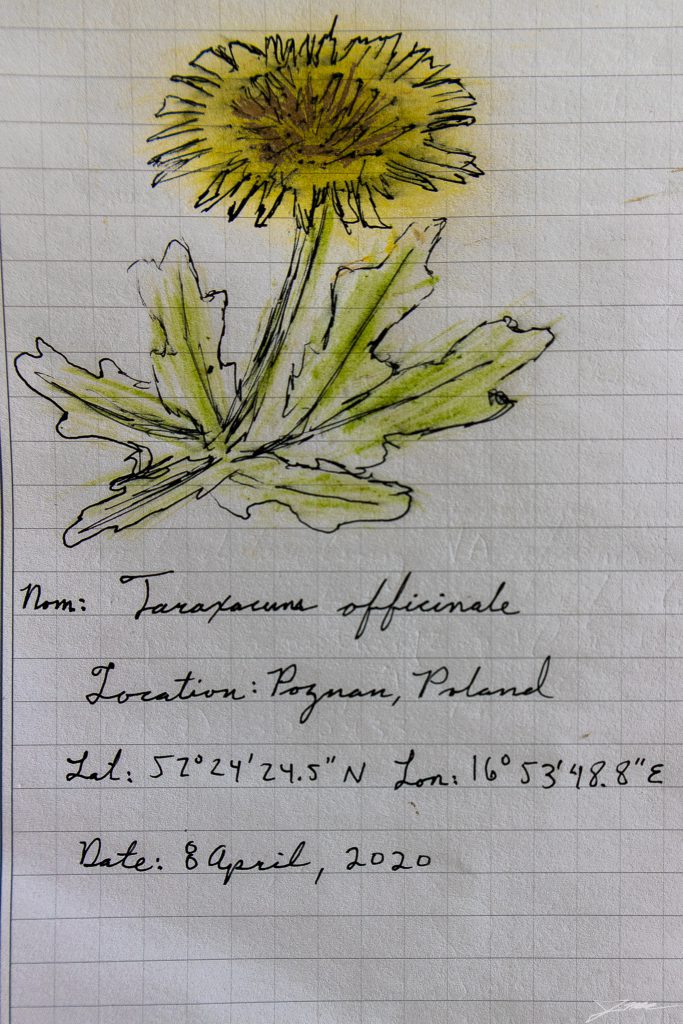 Nom: Taraxacum officinale
Location: Poznan, Poland
Lat: 52°24'24.5"N Lon: 16°53'48.8"E
Date: 8 April, 2020